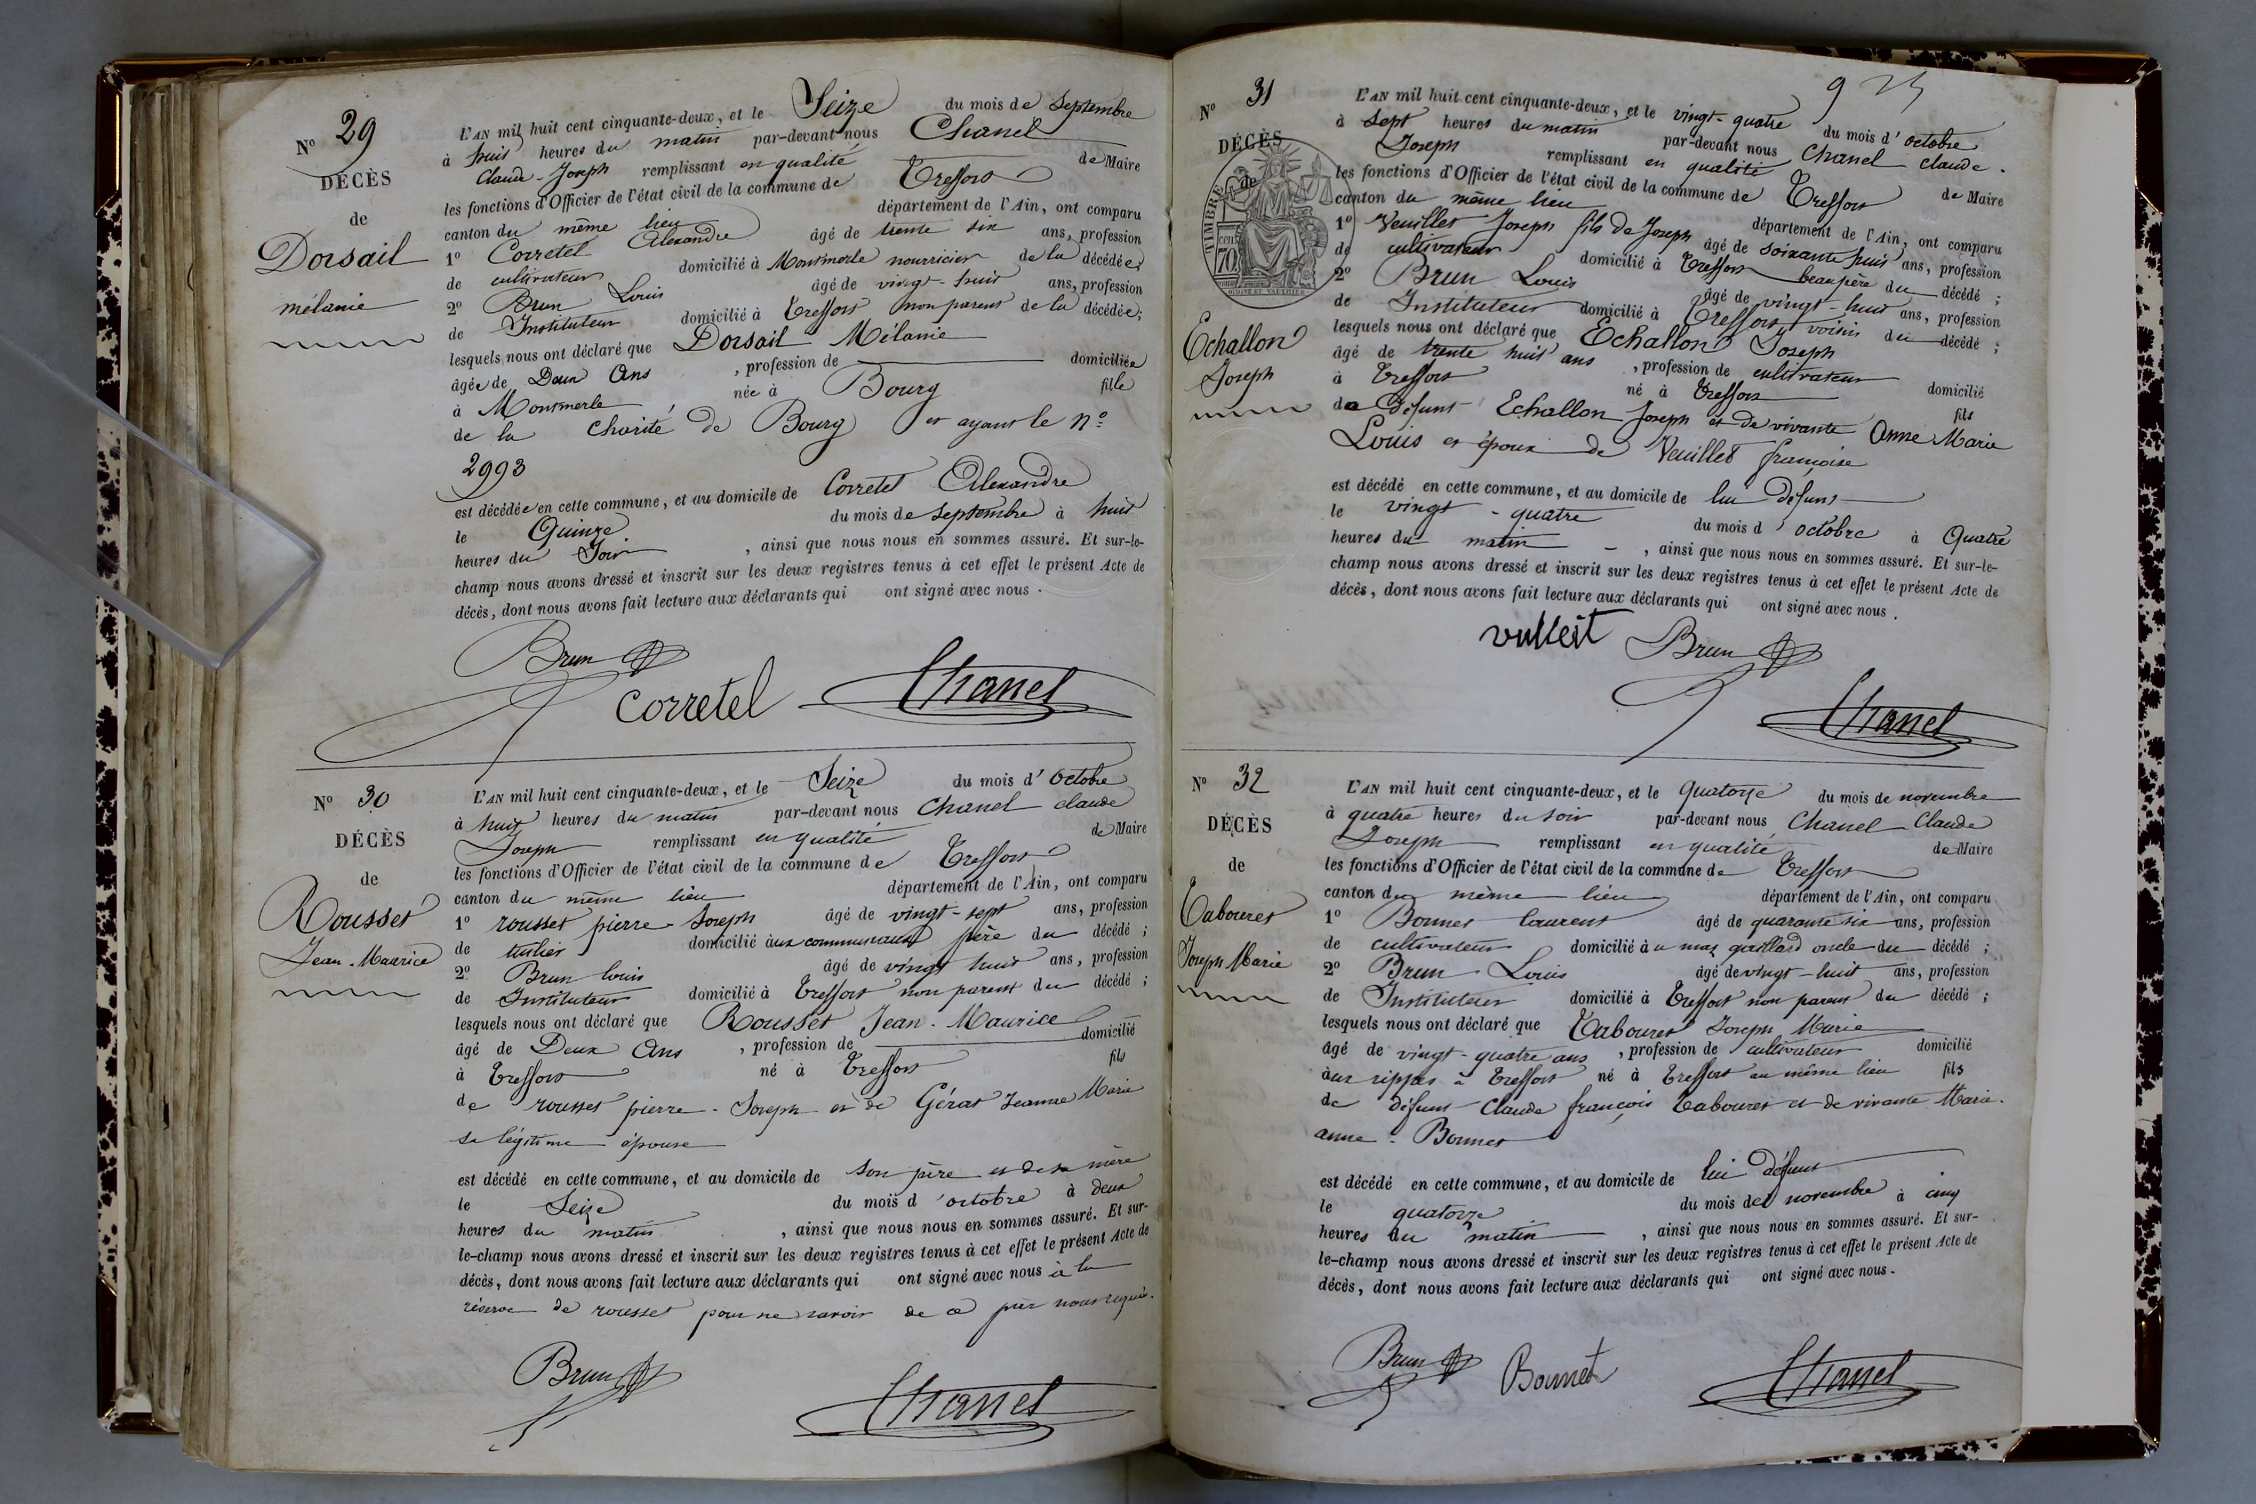 N° 29
DÉCÈS
de
Dorsail
mélanie
L'AN mil huit cent cinquante-deux, et le Seize du mois de Septembre
à huit heures du matin par-devant nous Chanel
Claude-Joseph remplissant en qualité de Maire
les fonctions d'Officier de l'état civil de la commune de Treffort
canton du même lieu département de l'Ain, ont comparu
1° Corretel Alexandre âgé de trente six ans, profession
de cultivateur domicilié à Montmerle nourricier de la décédée;
2° Brun Louis âgé de vingt-huit ans, profession
de Instituteur domicilié à Treffort non parent de la décédée;
lesquels nous ont déclaré que Dorsail Mélanie
âgée de Deux Ans, profession de domiciliée
à Montmerle, née à Bourg fille
de la charité de Bourg et ayant le N°
2993
est décédée en cette commune, et au domicile de Corretel Alexandre
le Quinze du mois de septembre à huit
heures du Soir, ainsi que nous nous en sommes assuré. Et sur-le-
champ nous avons dressé et inscrit sur les deux registres tenus à cet effet le présent Acte de
décès, dont nous avons fait lecture aux déclarants qui ont signé avec nous.
Brun
Corretel Chanel
N° 30
DÉCÈS
de
Rousset
Jean-Maurice
L'AN mil huit cent cinquante-deux, et le Seize du mois d'octobre
à huit heures du matin par-devant nous Chanel claude
Joseph remplissant en qualité de Maire
les fonctions d'Officier de l'état civil de la commune de Treffort
canton du même lieu département de l'Ain, ont comparu
1° rousset pierre Joseph âgé de vingt-sept ans, profession
de tuilier domicilié aux communaux père du décédé;
2° Brun louis âgé de vingt huit ans, profession
de Instituteur domicilié à Treffort non parent du décédé;
lesquels nous ont déclaré que Rousset Jean-Maurice
âgé de Deux Ans, profession de domicilié
à Treffort né à Treffort fils
de rousset pierre-Joseph et de Gérat Jeanne Marie
sa légitime épouse
est décédé en cette commune, et au domicile de son père et de sa mère
le Seize du mois d'octobre à deux
heures du matin, ainsi que nous nous en sommes assuré. Et sur-
le-champ nous avons dressé et inscrit sur les deux registres tenus à cet effet le présent Acte de
décès, dont nous avons fait lecture aux déclarants qui ont signé avec nous à la
réserve de rousset pour ne savoir de ce par nous requis.
Brun
Chanel
9
N° 31
DÉCÈS
de
TIMBRE
70
Echallon
Joseph
L'AN mil huit cent cinquante-deux, et le vingt-quatre du mois d'octobre
à sept heures du matin par-devant nous Chanel claude
Joseph remplissant en qualité de Maire
les fonctions d'Officier de l'état civil de la commune de Treffort
canton du même lieu département de l'Ain, ont comparu
1° Veuillet Joseph fils de Joseph âgé de soixante huit ans, profession
de cultivateur domicilié à Treffort beaupère du décédé;
2° Brun Louis âgé de vingt-huit ans, profession
de Instituteur domicilié à Treffort voisin du décédé;
lesquels nous ont déclaré que Echallon Joseph
âgé de trente huit ans, profession de cultivateur domicilié
à Treffort né à Treffort fils
de défunt Echallon Joseph et de vivante Anne Marie
Louis et époux de Veuillet françoise
est décédé en cette commune, et au domicile de lui défunt
le vingt-quatre du mois d'octobre à Quatre
heures du matin, ainsi que nous nous en sommes assuré. Et sur-le-
champ nous avons dressé et inscrit sur les deux registres tenus à cet effet le présent Acte de
décès, dont nous avons fait lecture aux déclarants qui ont signé avec nous.
Brun
Chanel
N° 32
DÉCÈS
de
Tabouret
Joseph Marie
L'AN mil huit cent cinquante-deux, et le quatorze du mois de novembre
à quatre heures du soir par-devant nous Chanel Claude
Joseph remplissant en qualité de Maire
les fonctions d'Officier de l'état civil de la commune de Treffort
canton du même lieu département de l'Ain, ont comparu
1° Bonnet laurent âgé de quarante six ans, profession
de cultivateur domicilié au maz gaillard oncle du décédé;
2° Brun Louis âgé de vingt-huit ans, profession
de Instituteur domicilié à Treffort non parent du décédé;
lesquels nous ont déclaré que Tabouret Joseph Marie
âgé de vingt-quatre ans, profession de cultivateur domicilié
aux rippes à Treffort né à Treffort au même lieu fils
de défunt Claude françois Tabouret et de vivante Marie-
anne-Bonnet
est décédé en cette commune, et au domicile de lui défunt
le quatorze du mois de novembre à cinq
heures du matin, ainsi que nous nous en sommes assuré. Et sur-
le-champ nous avons dressé et inscrit sur les deux registres tenus à cet effet le présent Acte de
décès, dont nous avons fait lecture aux déclarants qui ont signé avec nous.
Brun Bonnet Chanel